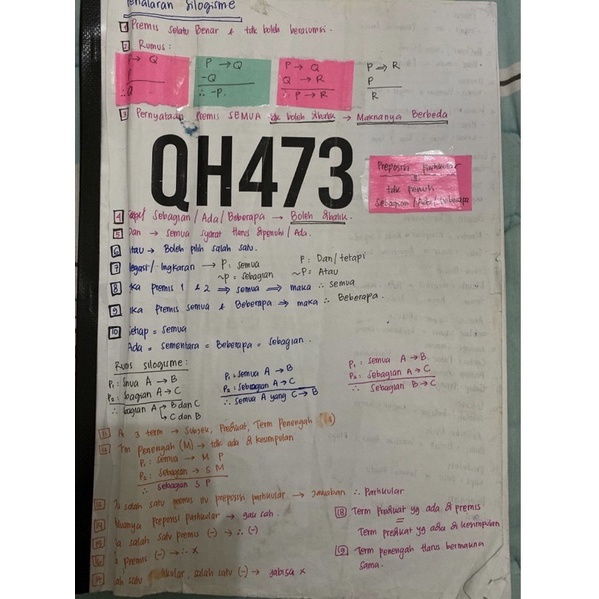 Penalaran Silogisme
1 Premis selalu Benar & tdk boleh berasumsi.
2 Rumus:
P → Q
P
∴ Q
P → Q
-Q
∴ -P.
P → Q
Q → R
∴ P → R
P → R
P
R
3 Pernyataan Premis SEMUA tdk boleh dibalik → Maknanya Berbeda
QH473
Preposisi partikular
tdk penuh
Sebagian/Ada/Beberapa
4 Sebagian/Ada/Beberapa → Boleh dibalik.
5 Dan → semua syarat Harus dipenuhi/Ada.
6 Atau → Boleh pilih salah satu.
7 Negasi/Ingkaran → P: semua
~P = sebagian
P: Dan/tetapi
~P = Atau
8 Jika Premis 1 & 2 ⇒ semua ⇒ maka ∴ semua
9 Jika Premis semua & Beberapa ⇒ maka ∴ Beberapa.
10 Setiap = Semua
Ada = Sementara = Beberapa = Sebagian.
silogisme:
P₁: semua A → B
P₂: sebagian A → C
∴ sebagian A → B dan C
→ C dan B
P₁: semua A → B
P₂: sebagian A → C
∴ Semua A yang C → B
P₁: semua A → B
P₂: sebagian A → C
∴ sebagian B → C
3 term → Subjek, Predikat, Term Penengah
Penengah (M) → tdk ada di kesimpulan
P₁: semua → M P
P₂: sebagian → S M
∴ sebagian S P
salah satu premis itu preposisi partikular → jawaban ∴ Partikular
preposisi partikular → gak sah.
salah satu premis (-) → ∴ (-)
premis (-) → ∴ x
salah satu (-) → gabisa x
18 Term Predikat yg ada di premis
=
Term predikat yg ada di kesimpulan
19 Term penengah Harus bermakna
sama.